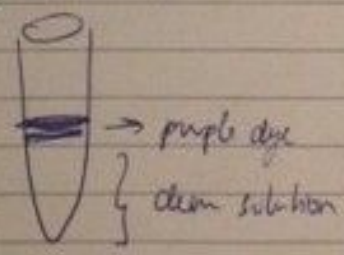 purple dye
clean solution